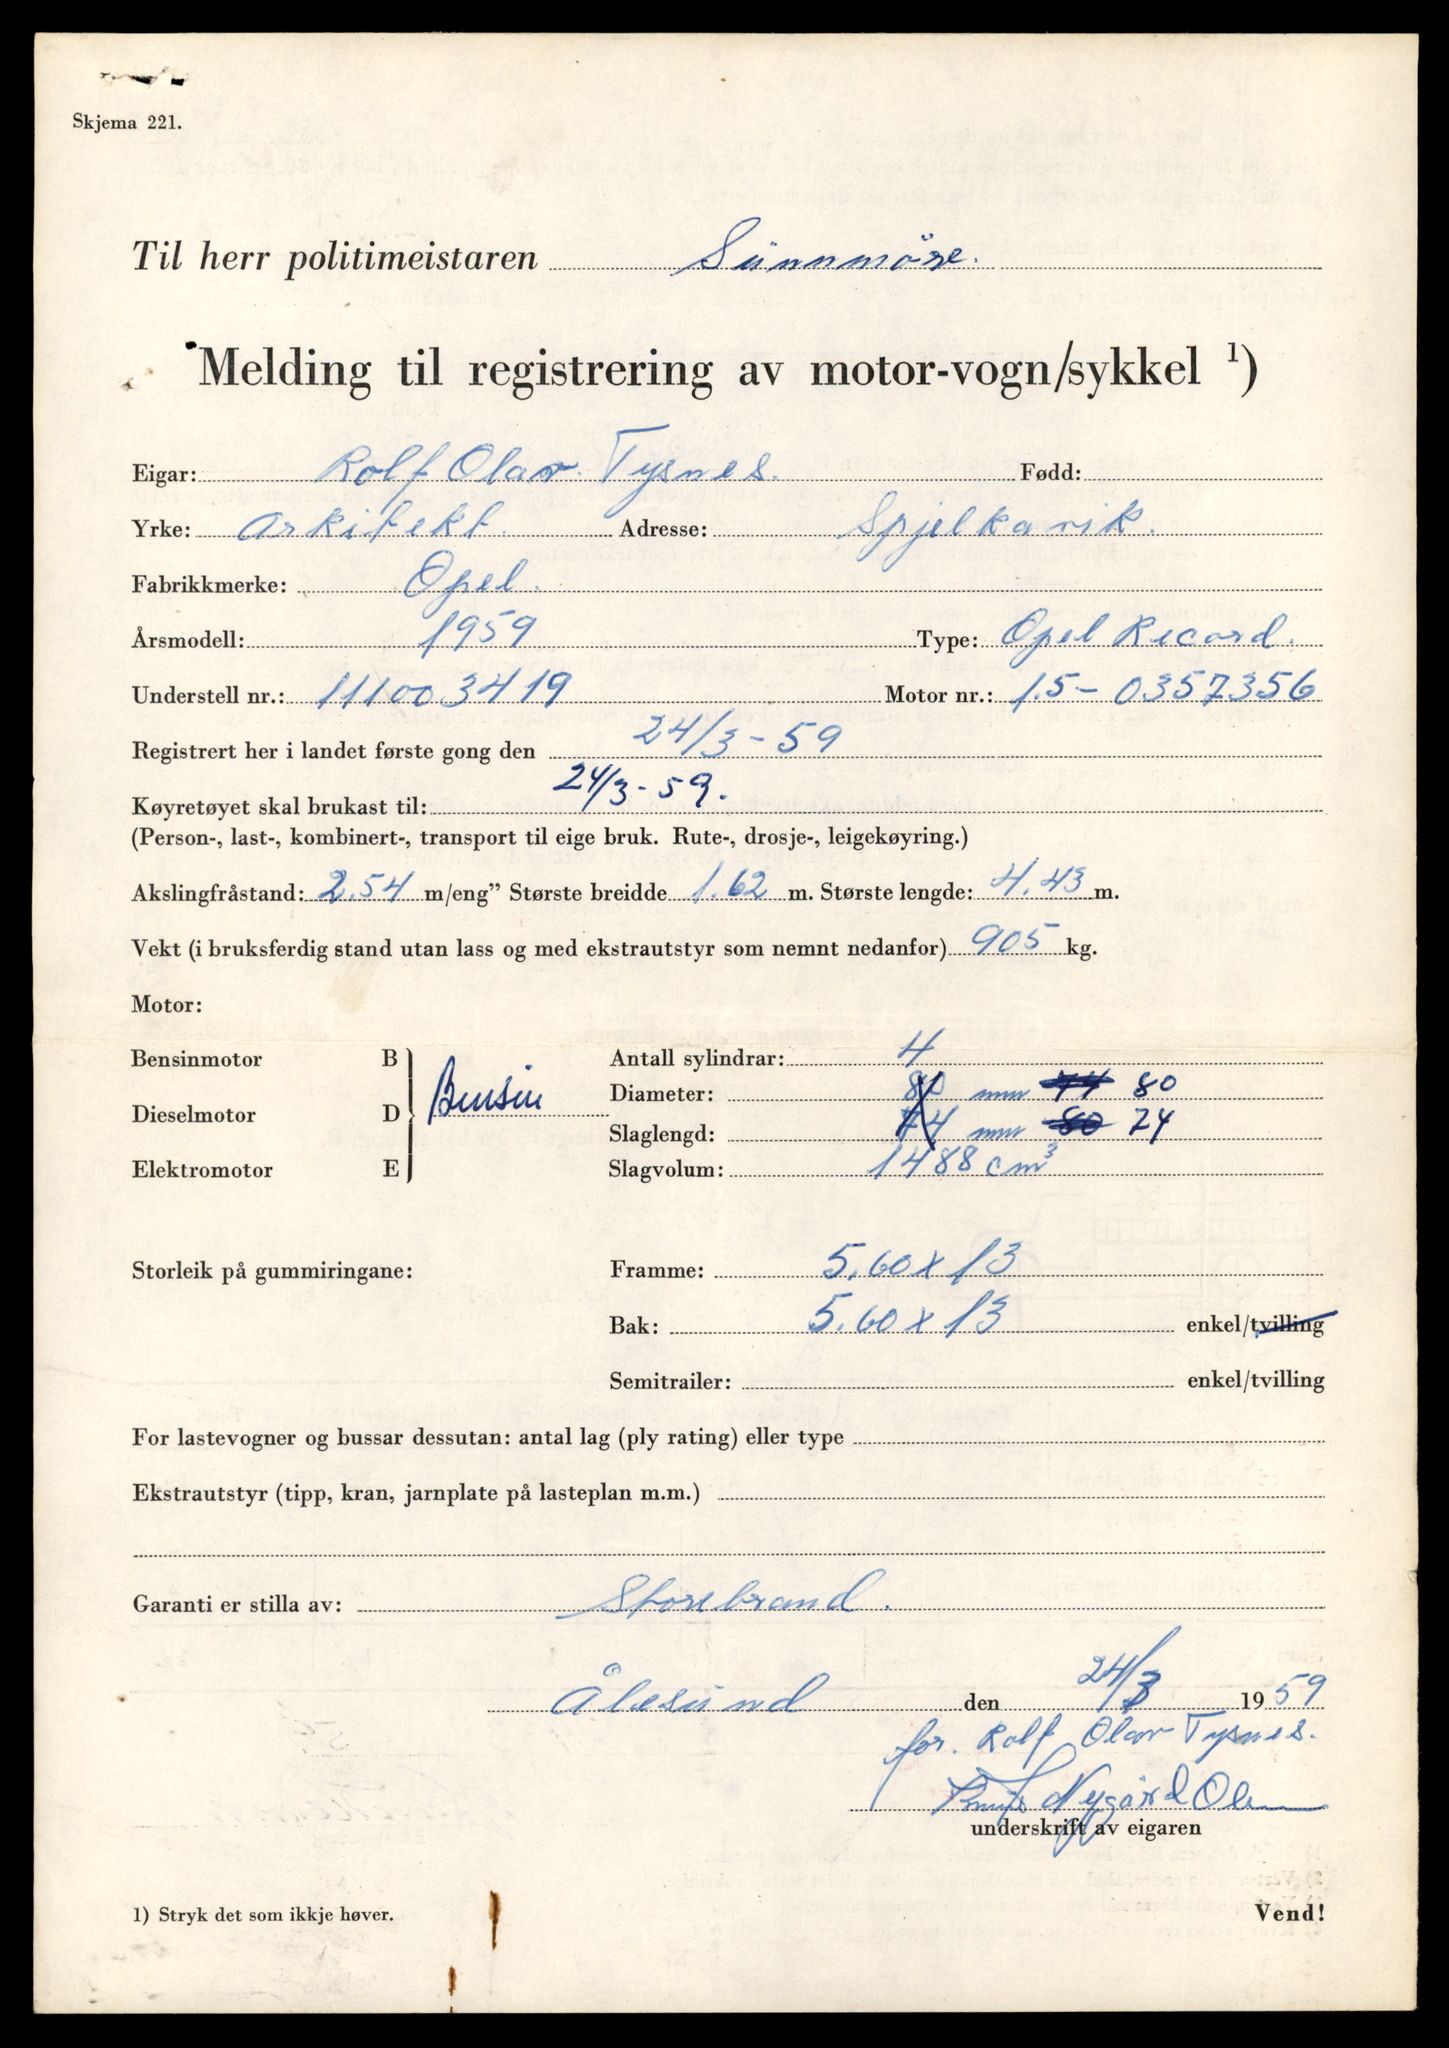 Skjema 221.
Til herr politimeistaren Sunnmöre.
Melding til registrering av motor-vogn/sykkel ¹)
Eigar: Rolf Olav Tysnes. Fødd:
Yrke: Arkitekt. Adresse: Spjelkavik.
Fabrikkmerke: Opel.
Årsmodell: 1959 Type: Opel Record.
Understell nr.: 111003419 Motor nr.: 1.5-0357356
Registrert her i landet første gong den 24/3-59
Køyretøyet skal brukast til: 24/3-59.
(Person-, last-, kombinert-, transport til eige bruk. Rute-, drosje-, leigekøyring.)
Akslingfråstand: 2.54 m/eng” Største breidde 1.62 m. Største lengde: 4.43 m.
Vekt (i bruksferdig stand utan lass og med ekstrautstyr som nemnt nedanfor) 905 kg.
Motor:
Bensinmotor B Antall sylindrar: 4
Bensin Diameter: 80 mm 74 80
Dieselmotor D
Slaglengd: 74 mm 80 74
Elektromotor E Slagvolum: 1488 cm³
Storleik på gummiringane: Framme: 5.60 x 13
Bak: 5.60 x 13 enkel/tvilling
Semitrailer: enkel/tvilling
For lastevogner og bussar dessutan: antal lag (ply rating) eller type
Ekstrautstyr (tipp, kran, jarnplate på lasteplan m.m.)
Garanti er stilla av: Storebrand.
Ålesund den 24/3 1959
for. Rolf Olav Tysnes.
Nygård Olsen
underskrift av eigaren
1) Stryk det som ikkje høver. Vend!